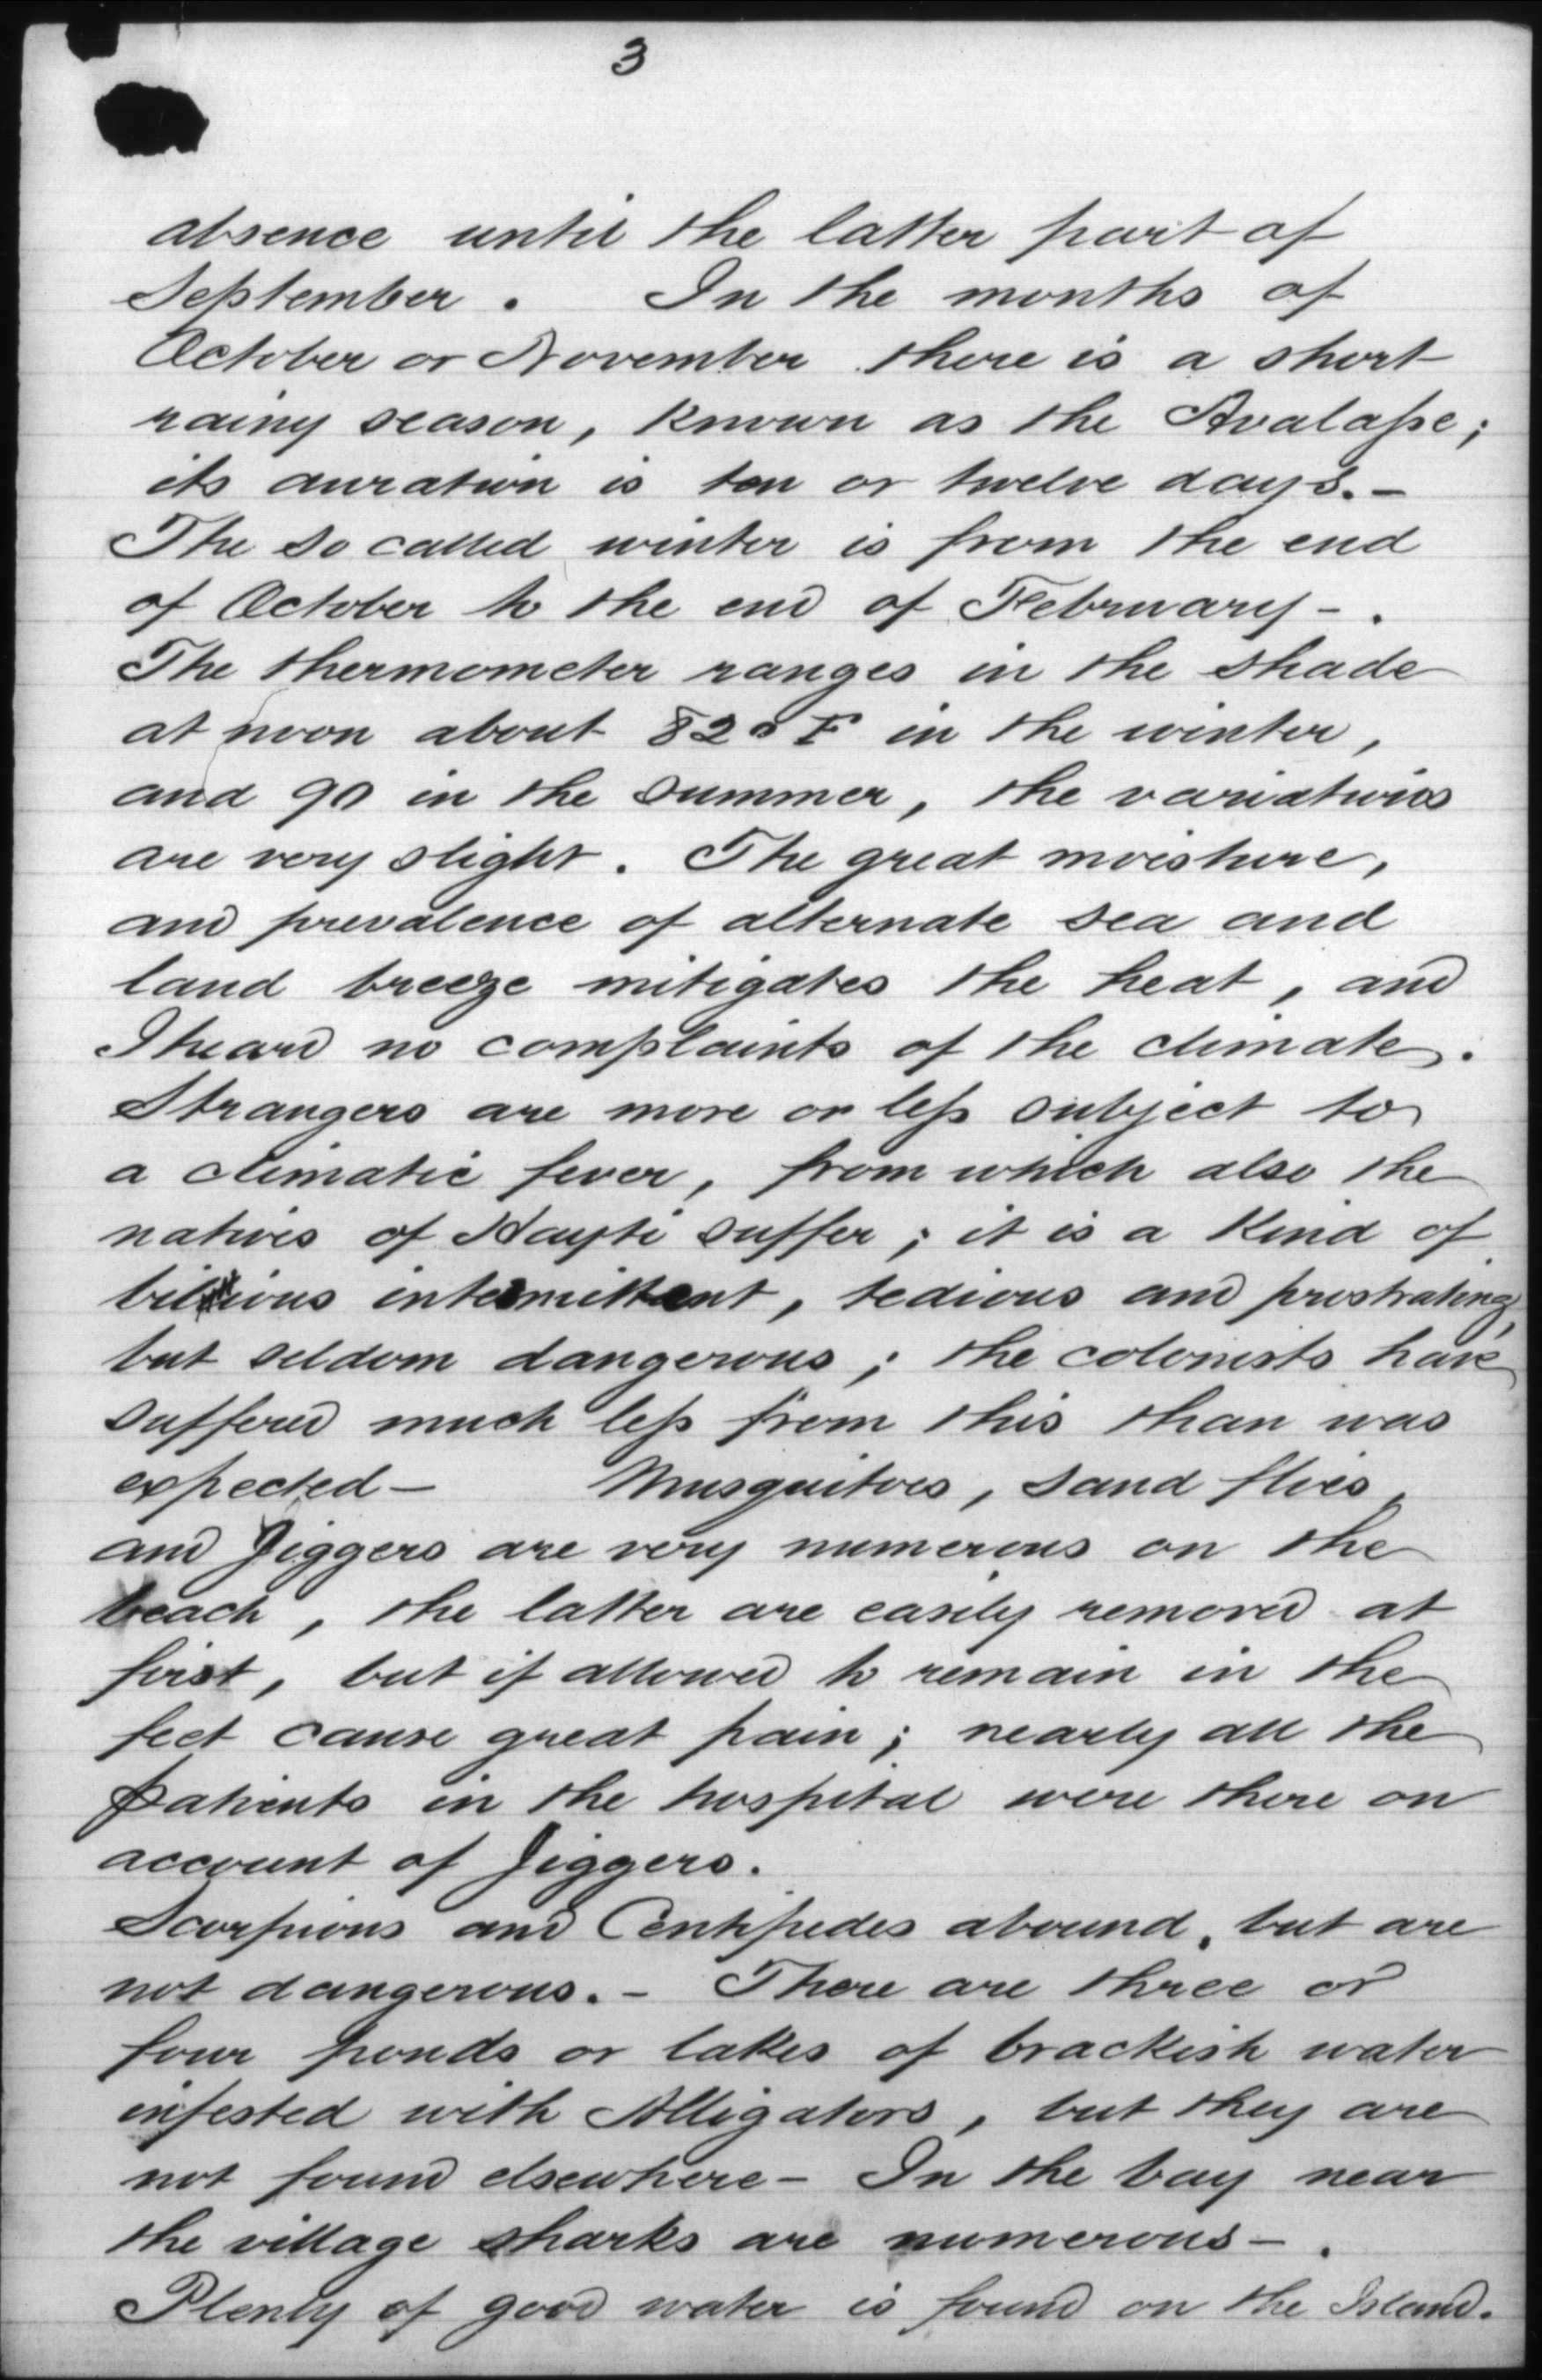 3
absence until the latter part of
September. In the months of
October or November there is a short
rainy season, known as the Avalasse;
its duration is ten or twelve days.-
The so called winter is from the end
of October to the end of February-.
The thermometer ranges in the shade
at noon about 82° F in the winter,
and 90 in the summer, the variations
are very slight. The great moisture,
and prevalence of alternate sea and
land breeze mitigates the heat, and
I heard no complaints of the climate.
Strangers are more or less subject to
a climatic fever, from which also the
natives of Hayti suffer; it is a kind of
bilious intermittent, tedious and prostrating,
but seldom dangerous; the colonists have
suffered much less from this than was
expected- Musquitoes, sand flies,
and Jiggers are very numerous on the
beach, the latter are easily removed at
first, but if allowed to remain in the
feet cause great pain; nearly all the
patients in the hospital were there on
account of Jiggers.
Scorpions and Centipedes abound, but are
not dangerous.- There are three or
four ponds or lakes of brackish water
infested with Alligators, but they are
not found elsewhere- In the bay near
the village sharks are numerous-.
Plenty of good water is found on the Island.